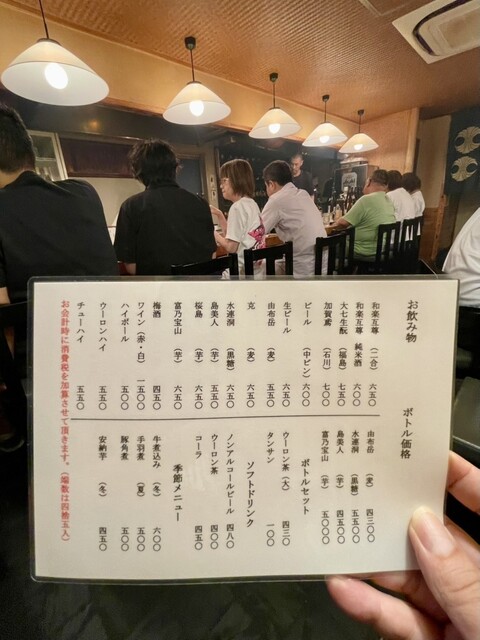 お飲み物
和楽互尊 (二合) 六五〇
和楽互尊 純米酒 六〇〇
大七生酛 (福島) 七五〇
加賀鳶 (石川) 七〇〇
ビール (中ビン) 六〇〇
生ビール 六五〇
由布岳 (麦) 五五〇
克 (麦) 六五〇
水連洞 (黒糖) 六五〇
島美人 (芋) 五五〇
桜島 (芋) 六五〇
富乃宝山 (芋) 六五〇
梅酒 四五〇
ワイン (赤・白) 一五〇〇
ハイボール 五〇〇
ウーロンハイ 五五〇
チューハイ 五五〇
ボトル価格
由布岳 (麦) 四三〇〇
水連洞 (黒糖) 五五〇〇
島美人 (芋) 四五〇〇
富乃宝山 (芋) 五〇〇〇
ボトルセット
ウーロン茶 (大) 四三〇
タンサン 一〇〇
ソフトドリンク
ノンアルコールビール 四八〇
ウーロン茶 四〇〇
コーラ 四五〇
季節メニュー
牛煮込み (冬) 六〇〇
手羽煮 (夏) 五〇〇
豚角煮 五〇〇
安納芋 (冬) 四五〇
お会計時に消費税を加算させて頂きます。(端数は四捨五入)